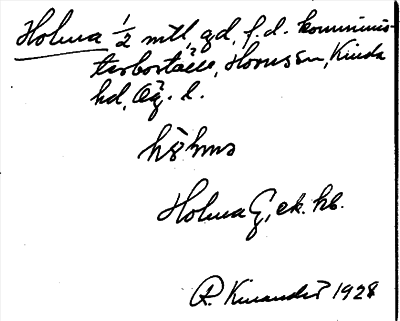 Holma 1/2 mtl, gd, f.d. komminis-
terboställe, Hornsön, Kinda
hd, Ög. l.
Holma G, ek. kb.
R. Kinander 1928